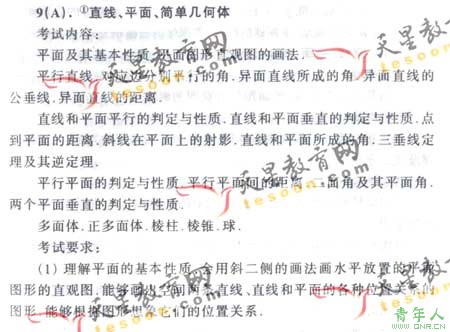 9(A).①直线、平面、简单几何体
考试内容:
平面及其基本性质.平面图形直观图的画法.
平行直线.对应边分别平行的角.异面直线所成的角.异面直线的
公垂线.异面直线的距离.
直线和平面平行的判定与性质.直线和平面垂直的判定与性质.点
到平面的距离.斜线在平面上的射影.直线和平面所成的角.三垂线定
理及其逆定理.
平行平面的判定与性质.平行平面间的距离.二面角及其平面角.
两个平面垂直的判定与性质.
多面体.正多面体.棱柱.棱锥.球.
考试要求:
(1) 理解平面的基本性质,会用斜二侧的画法画水平放置的平面
图形的直观图.能够画出空间两条直线、直线和平面的各种位置关系的
图形.能够根据图形想象它们的位置关系.
天星教育网
tesoon.com
天星教育网
tesoon.com
天星教育网
tesoon.com
青年人